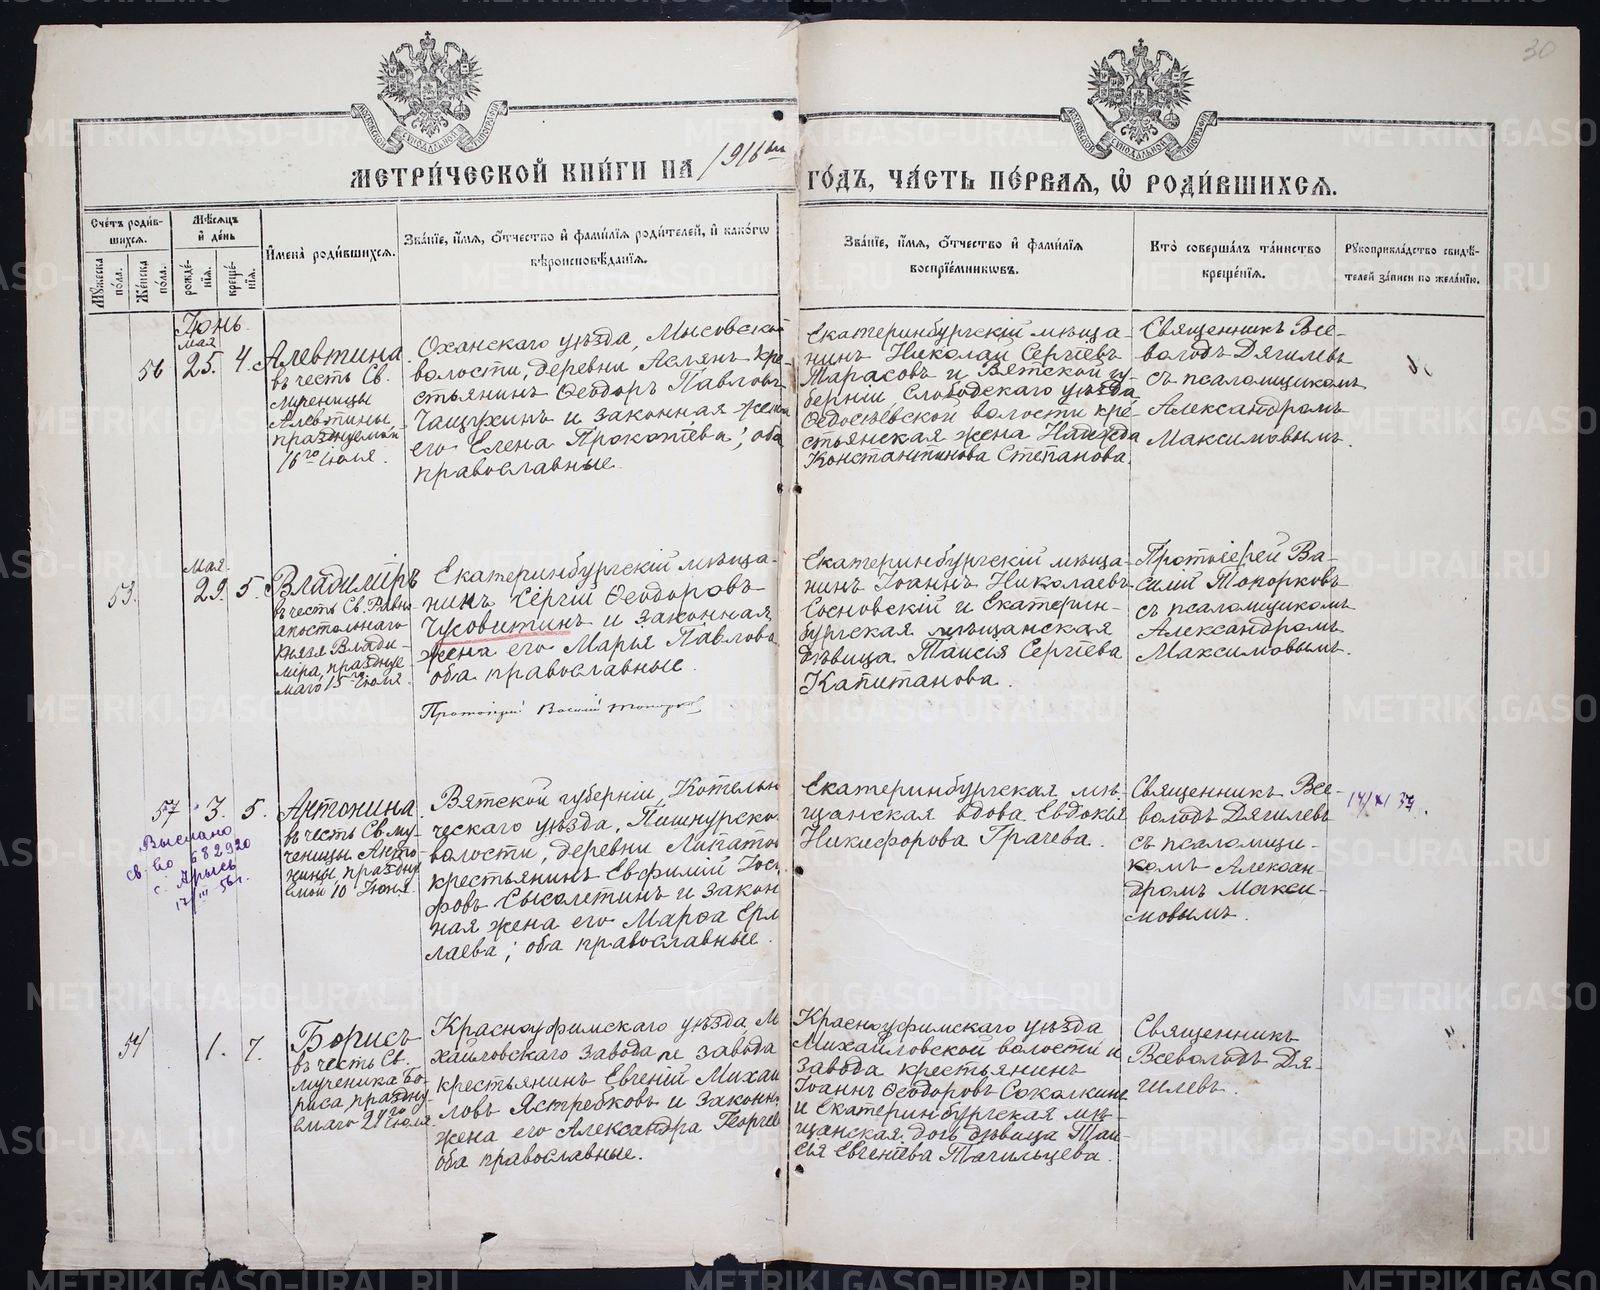 30
МЕТРИЧЕСКОЙ КНИГИ НА 1916 ГОДЪ, ЧАСТЬ ПЕРВАЯ, Ѡ РОДИВШИХСЯ.
Счетъ родив-
шихся.
Мужеска пола.
Женска пола.
Мѣсяцъ
и день
рожде-
нія.
креще-
нія.
Имена родившихся.
Званіе, имя, отчество и фамилія родителей, и какогѡ
вѣроисповѣданія.
Званіе, имя, отчество и фамилія
воспріемникѡвъ.
Кто совершалъ таинство
крещенія.
Рукоприкладство свидѣ-
телей записи по желанію.
Іюнь
56
мая
25.
4.
Алевтина
въ честь Св.
мученицы
Алевтины,
празднуемой
16го Іюля.
Оханскаго уѣзда, Мысовской
волости, деревни Аслянъ кре-
стьянинъ Ѳеодоръ Павловъ
Чащухинъ и законная жена
его Елена Прокопіева; оба
православные.
Екатеринбургскій мѣща-
нинъ Николай Сергѣевъ
Тарасовъ и Вятской гу-
берніи, Слободскаго уѣзда
Ѳедосѣевской волости кре-
стьянская жена Надежда
Константинова Степанова.
Священникъ Все-
володъ Дягилевъ
съ псаломщикомъ
Александромъ
Максимовымъ.
53.
Мая
29.
5.
Владиміръ
въ честь Св. Равно-
апостольнаго
князя Влади-
міра, праздуе-
маго 15го Іюля.
Екатеринбургскій мѣща-
нинъ Сергій Ѳеодоровъ
Чусовитинъ и законная
жена его Марья Павлова
оба православные.
Протоіерей Василій Топорков
Екатеринбургскій мѣща-
нинъ Іоаннъ Николаевъ
Сосновскій и Екатерин-
бургская мѣщанская
дѣвица Таисія Сергіева
Капитанова.
Протоіерей Ва-
силій Топорковъ
съ псаломщикомъ
Александромъ
Максимовымъ.
57
3.
5.
Выслано
св-во 682920
с. Арысь
17/III 56 г.
Антонина
въ честь Св. му-
ченицы Анто-
нины, праздну-
емой 10 Іюня.
Вятской губерніи, Котельни
ческаго уѣзда, Пишнурско
волости, деревни Липатов
крестьянинъ Евфимій Іос
фовъ Сысолетинъ и закон
ная жена его Марѳа Ерм
лаева; оба православные.
Екатеринбургская мѣ-
щанская вдова Евдокія
Никифорова Грачева.
Священникъ Все-
володъ Дягилевъ
съ псаломщи-
комъ Алексан-
дромъ Макси-
мовымъ.
14/XI 37.
54
1.
7.
Борисъ
въ честь Св.
мученика Бо-
риса, праздну-
емаго 24го Іюля.
Красноуфимскаго уѣзда, М
хайловскаго завода и завода
крестьянинъ Евгеній Михаи
ловъ Ястребковъ и законн.
жена его Александра Георгіев
оба православные.
Красноуфимскаго уѣзда
Михайловской волости и
завода крестьянинъ
Іоаннъ Ѳеодоровъ Сокалкинъ
и Екатеринбургская мѣ-
щанская дочь дѣвица Таи-
сія Евгеніева Тагильцева.
Священникъ
Всеволодъ Дя-
гилевъ.
METRIKI.GASO-URAL.RU